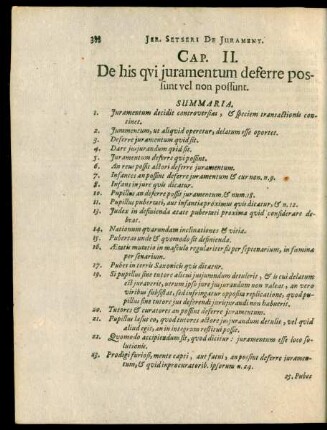 JER. SETSERI DE JURAMENT.
CAP. II.
De his qvi juramentum deferre pos-
sunt vel non possunt.
SUMMARIA.
1. Juramentum decidit controversias, & speciem transactionis con-
tinet.
2. Juramentum, ut aliquid operetur, delatum esse oportet.
3. Deferre juramentum quid sit.
4. Dare jusjurandum quid sit.
5. Juramentum deferre qvi possint.
6. An reus possit actori deferre juramentum.
7. Infantes an possint deferre juramentum & cur non. n.9.
8. Infans in jure quis dicatur.
10. Pupillus an deferre possit juramentum & num. 18.
11. Pupillus pubertati, aut infantiæ proximus quis dicatur, & n. 12.
13. Judex in definienda ætate pubertati proxima quid considerare de-
beat.
14. Nationum quarundam inclinationes & vitia.
15. Pubertas unde & quomodo sit definienda.
16. Ætatis mutatio in masculis regulariter fit per septenarium, in fœmina
per senarium.
17. Pubes in terris Saxonicis quis dicatur.
19. Si pupillus sine tutore alicui jusjurandum detulerit, & is cui delatum
est juraverit, utrum ipso jure jusjurandum non valeat, an vero
viribus subsistat, sed infringatur opposita replicatione, quod pu-
pillus sine tutore jus deferendi jusjurandi non habuerit.
20. Tutores & curatores an possint deferre juramentum.
21. Pupillus læsus eo, quod tutores actore jusjurandum detulit, vel quid
aliud egit, an in integrum restitui possit.
22. Quomodo accipiendum sit, quod dicitur: juramentum esse loco so-
lutionis.
23. Prodigi furiosi, mente capti, aut fatui, an possint deferre juramen-
tum, & quid in procuratorib. ipsorum n. 24.
25. Pubes